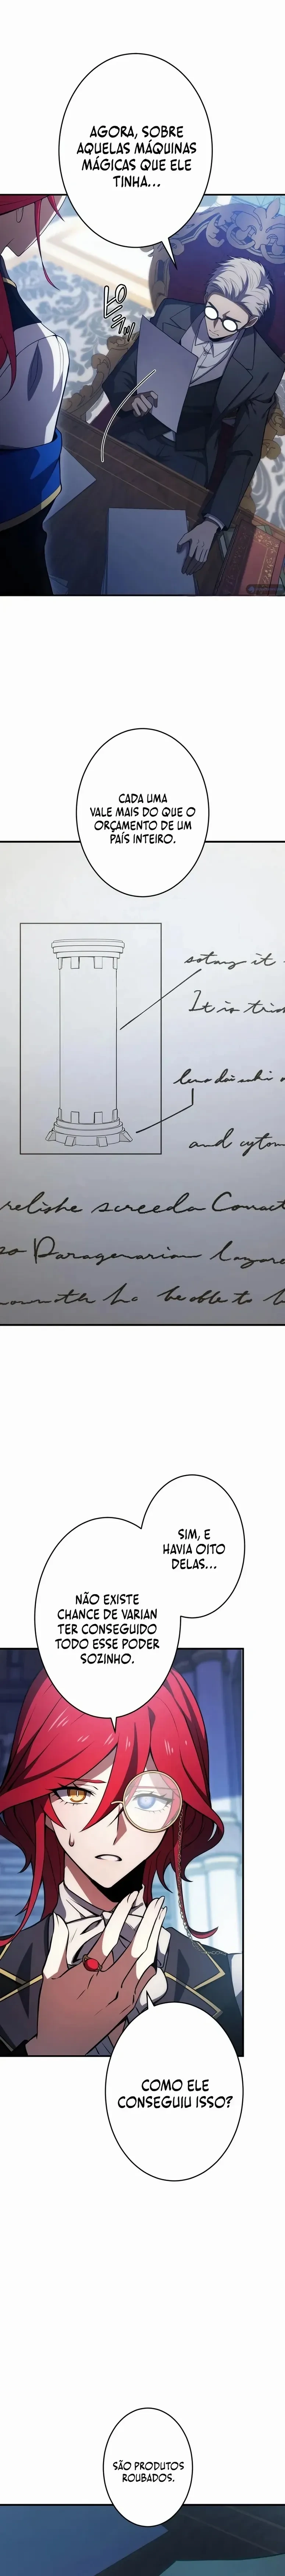 AGORA, SOBRE
AQUELAS MÁQUINAS
MÁGICAS QUE ELE
TINHA...
CADA UMA
VALE MAIS DO QUE O
ORÇAMENTO DE UM
PAÍS INTEIRO.
It is
and
relishe screeda
be able to
SIM, E
HAVIA OITO
DELAS...
NÃO EXISTE
CHANCE DE VARIAN
TER CONSEGUIDO
TODO ESSE PODER
SOZINHO.
COMO ELE
CONSEGUIU ISSO?
SÃO PRODUTOS
ROUBADOS.